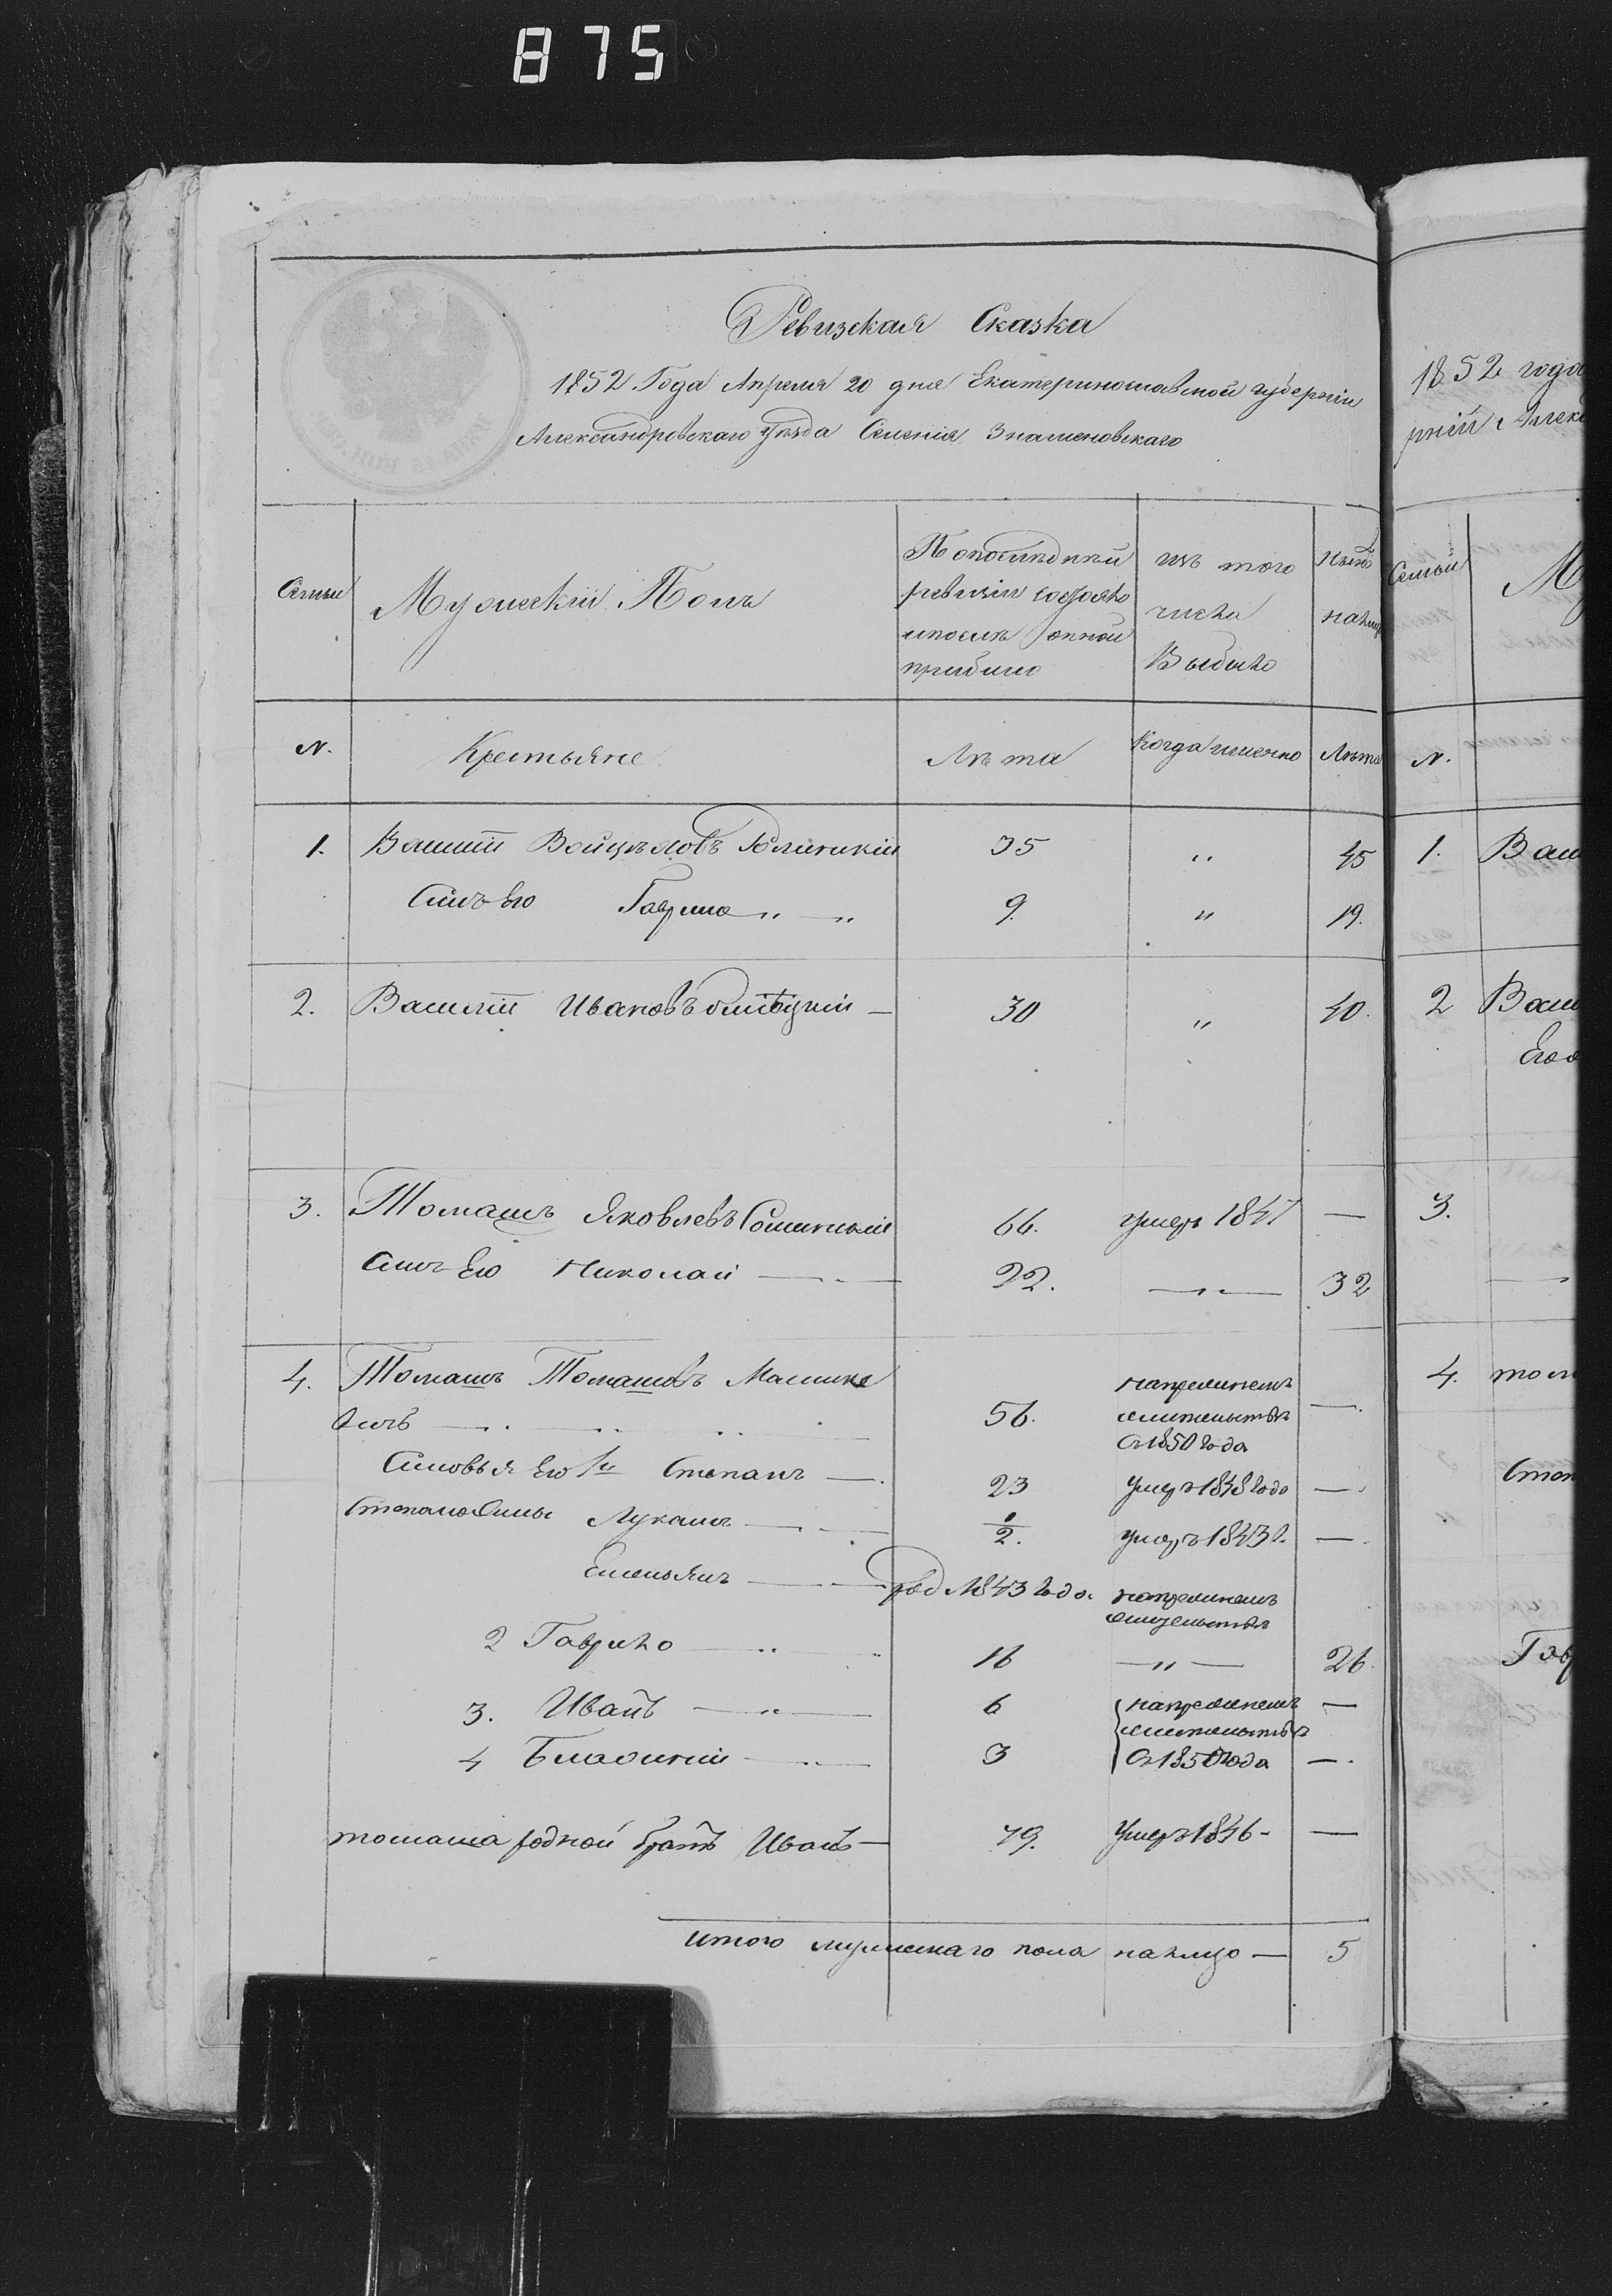 875
Ревизская Сказка
1852 Года Апреля 20 дня Екатеринославской губерніи
Александровскаго Уѣзда Селенія Знаменовскаго
Семьи
Мужескій Полъ
По последней
ревизіи состояло
и после оной
прибыло
изъ того
числа
Выбыло
Ныне
на лицо
N.
Крестьяне
Лѣта
Когда именно
Лѣта
1.
Василій
35
"
45
Сынъ Его Гаврило " — "
9.
"
19.
2.
Василій Ивановъ —
30
"
40.
3.
Томашъ Яковлевъ
66.
умеръ 1847
—
Сынъ Его Николай —
22.
— " —
32
4.
Томашъ Томашовъ
56.
жительствѣ
Съ 1850 Года
—
Сыновья Его 1й Степанъ —
23
Умеръ 1848 Годо
—
Степана Сыны Лукашъ —
1/2.
умеръ 1843 г.
—
Емельянъ —
род 1843 Года
2 Гаврило — "
16
— " —
26.
3. Иванъ — " —
6
—
жительствѣ
4
3
Съ 1850 Года
—
томаша родной братъ Иванъ —
49.
Умеръ 1846 -
—
Итого мужескаго пола на лицо —
5
1852 года
Семьи
N.
1.
2
3.
4.